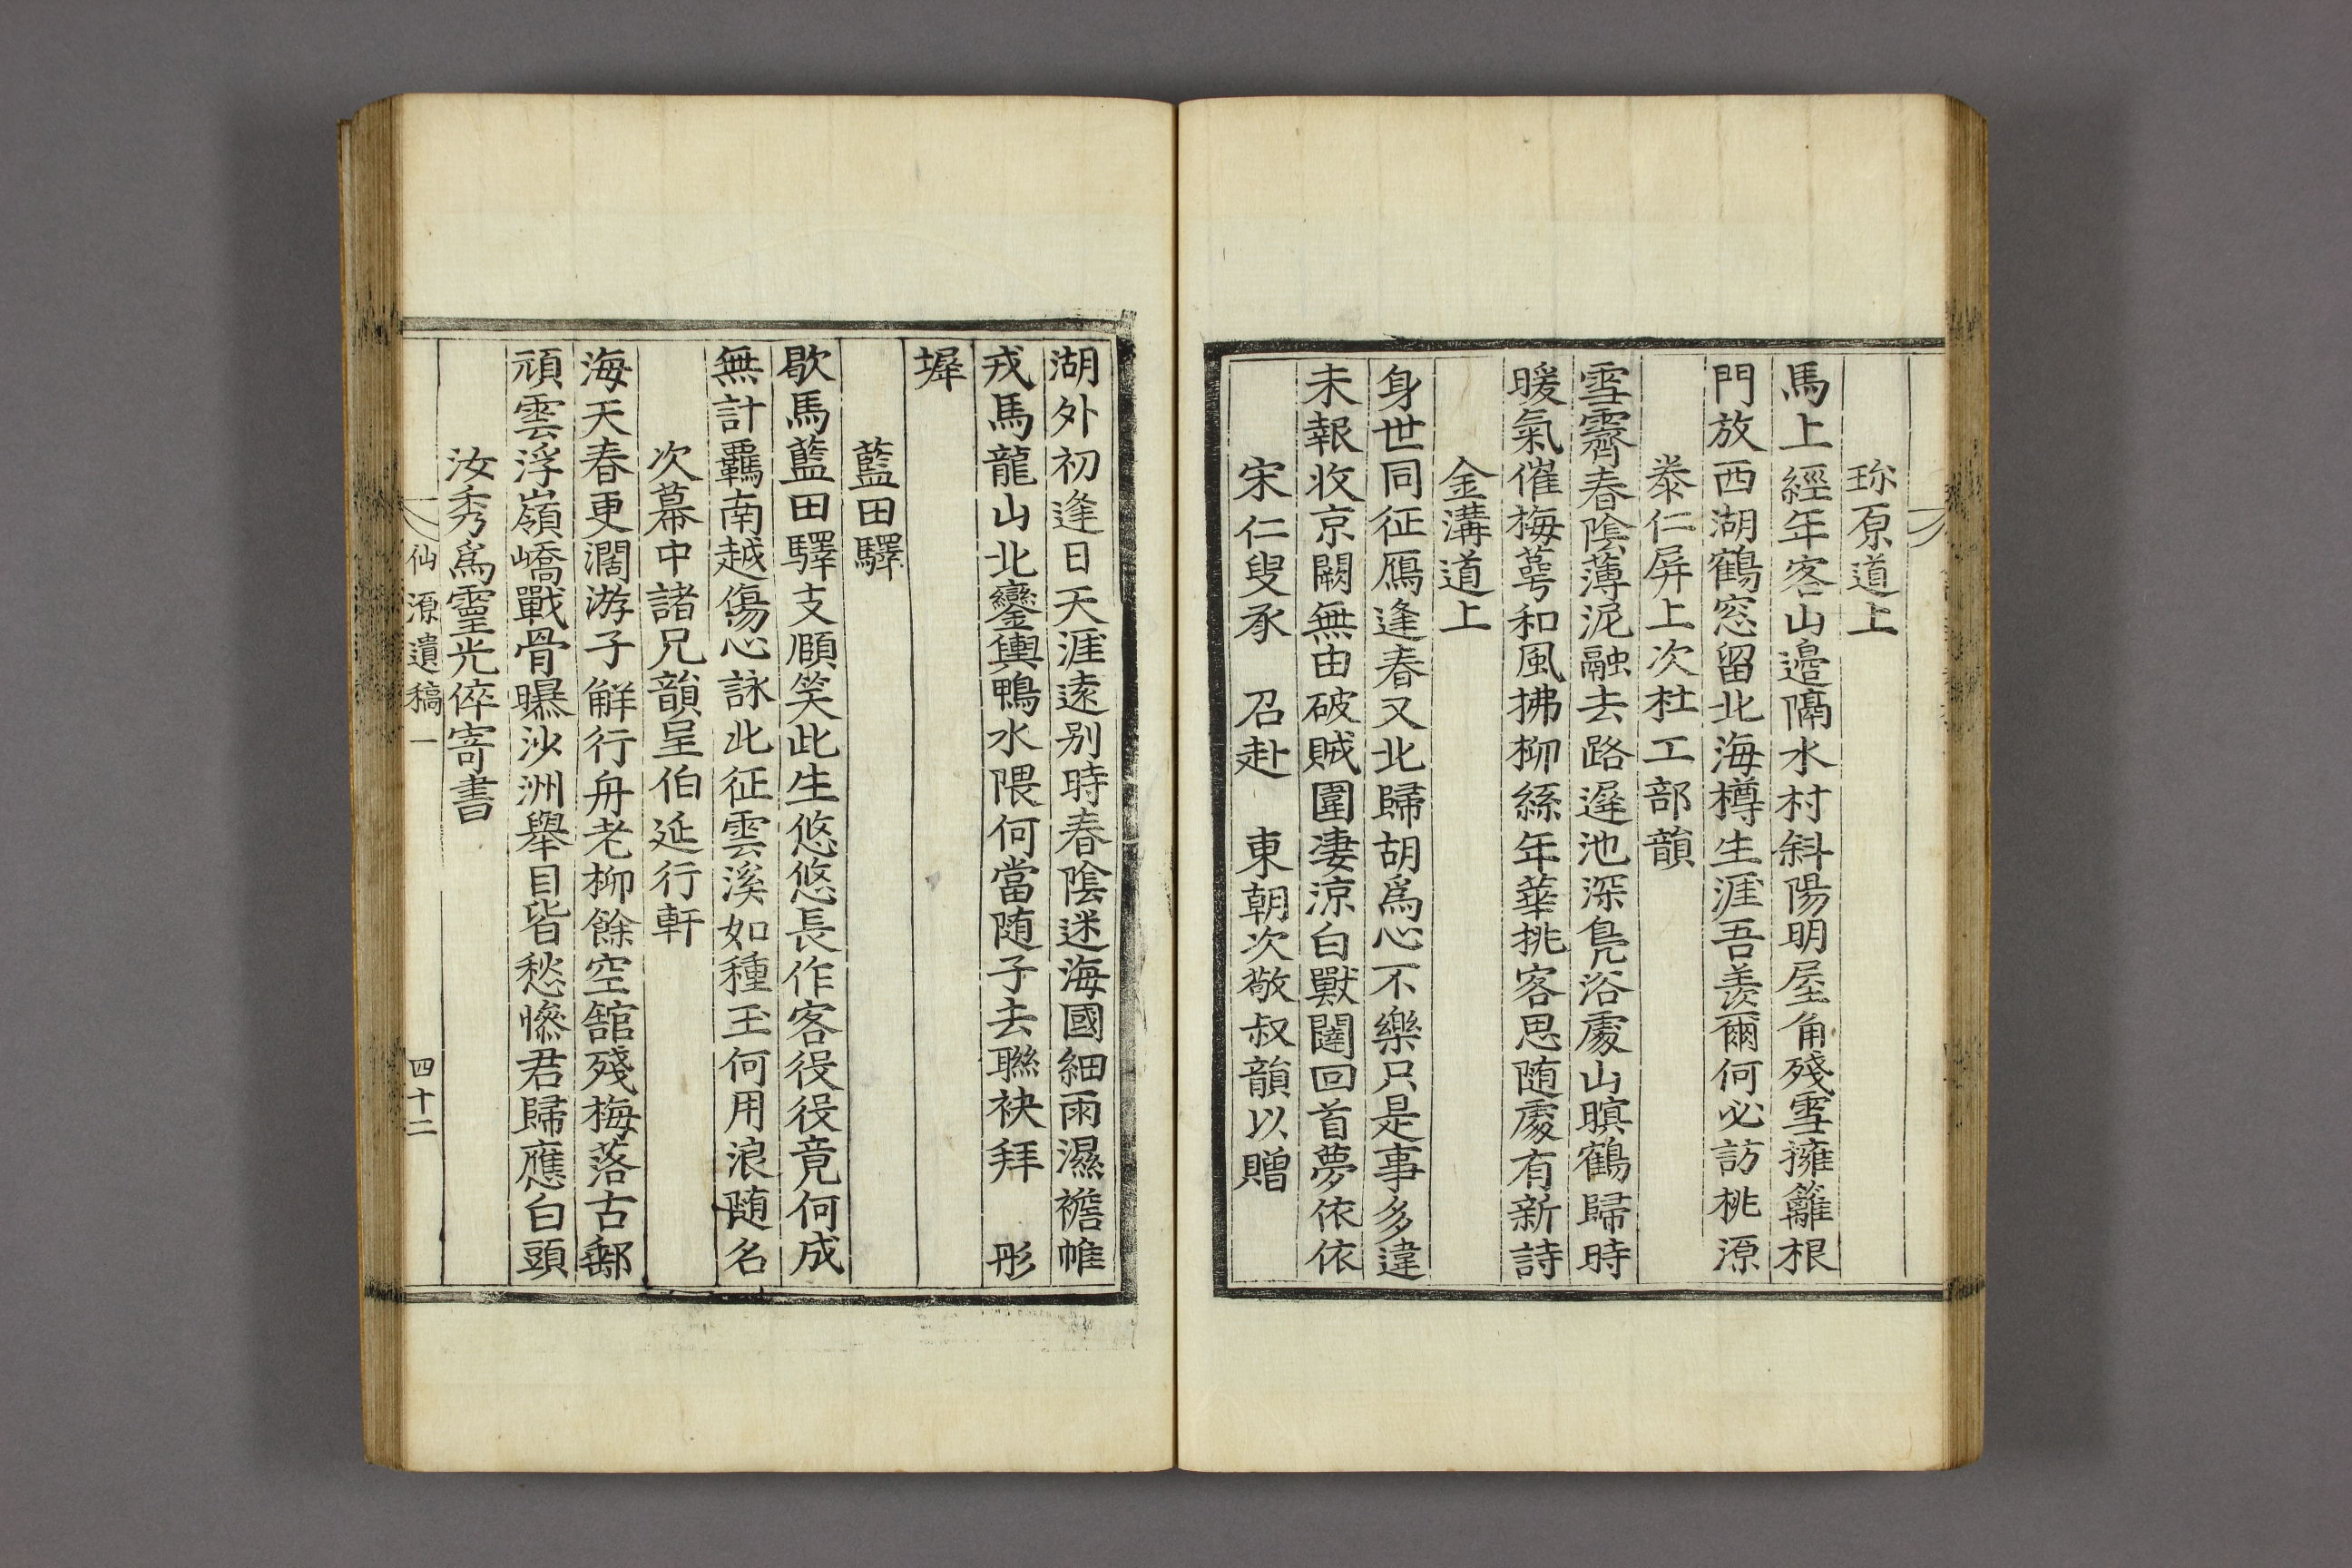 珎原道上
馬上經年客山邉隔水村斜陽明屋角殘雪擁籬根
門放西湖鶴窓留北海樽生涯吾羨爾何必訪桃源
泰仁屏上次杜工部韻
雪霽春陰薄泥融去路遅池深鳧浴處山暝鶴歸時
暖氣催梅萼和風拂柳絲年華挑客思随處有新詩
金溝道上
身世同征鴈逢春又北歸胡爲心不樂只是事多違
未報收京闕無由破賊圍凄涼白獸闥回首夢依依
宋仁叟承　召赴　東朝次敬叔韻以贈
湖外初逢日天涯遠别時春陰迷海國細雨濕襜帷
戎馬龍山北鑾輿鴨水隈何當随子去聯袂拜　彤
墀
藍田驛
歇馬藍田驛支頤笑此生悠悠長作客役役竟何成
無計羈南越傷心詠此征雲溪如種玉何用浪随名
次幕中諸兄韻呈伯延行軒
海天春更濶游子觧行舟老柳餘空舘殘梅落古郵
頑雲浮嶺嶠戰骨曝沙洲舉目皆愁慘君歸應白頭
汝秀爲霊光倅寄書
仙源遺稿一
四十二